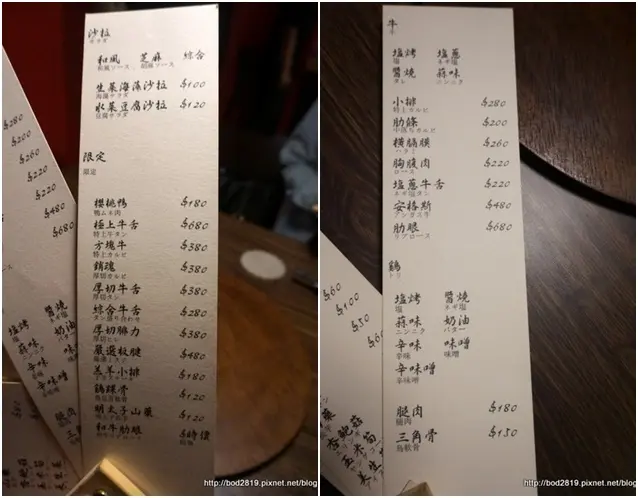 沙拉
サラダ
和風 芝麻 綜合
和風ソース 胡麻ソース
生菜海藻沙拉 $100
海藻サラダ
水菜豆腐沙拉 $120
豆腐サラダ
限定
限定
櫻桃鴨 $180
鴨ムネ肉
極上牛舌 $680
特上牛タン
方塊牛 $380
特上カルビ
銷魂 $380
厚切カルビ
厚切牛舌 $380
厚切タン
綜合牛舌 $280
タン盛り合わせ
厚切腓力 $380
厚切ヒレ
嚴選板腱 $480
羔羊小排 $180
鶏膝骨 $120
明太子山藥 $120
和牛肋眼 $時價
$280
$200
$260
$220
$220
$480
$680
塩烤
蒜味
辛味
辛味噌
醬燒
奶油
味
牛
塩烤 塩蔥
塩 ネギ塩
醬燒 蒜味
タレ ニンニク
小排 $280
特上カルビ
肋條 $200
中落ちカルビ
橫膈膜 $260
ハラミ
胸腹肉 $220
ロース
塩蔥牛舌 $220
ネギ塩タン
安格斯 $480
アンガス牛
肋眼 $680
リブロース
鶏
トリ
塩烤 醬燒
塩
蒜味 奶油
ニンニク バター
辛味 味噌
辛味 味噌
辛味噌
辛味噌
腿肉 $180
腿肉
三角骨 $150
鳥軟骨
$60
$100
$50
杏鮑菇
玉米筍
http://bod2819.pixnet.net/blog
http://bod2819.pixnet.net/blog